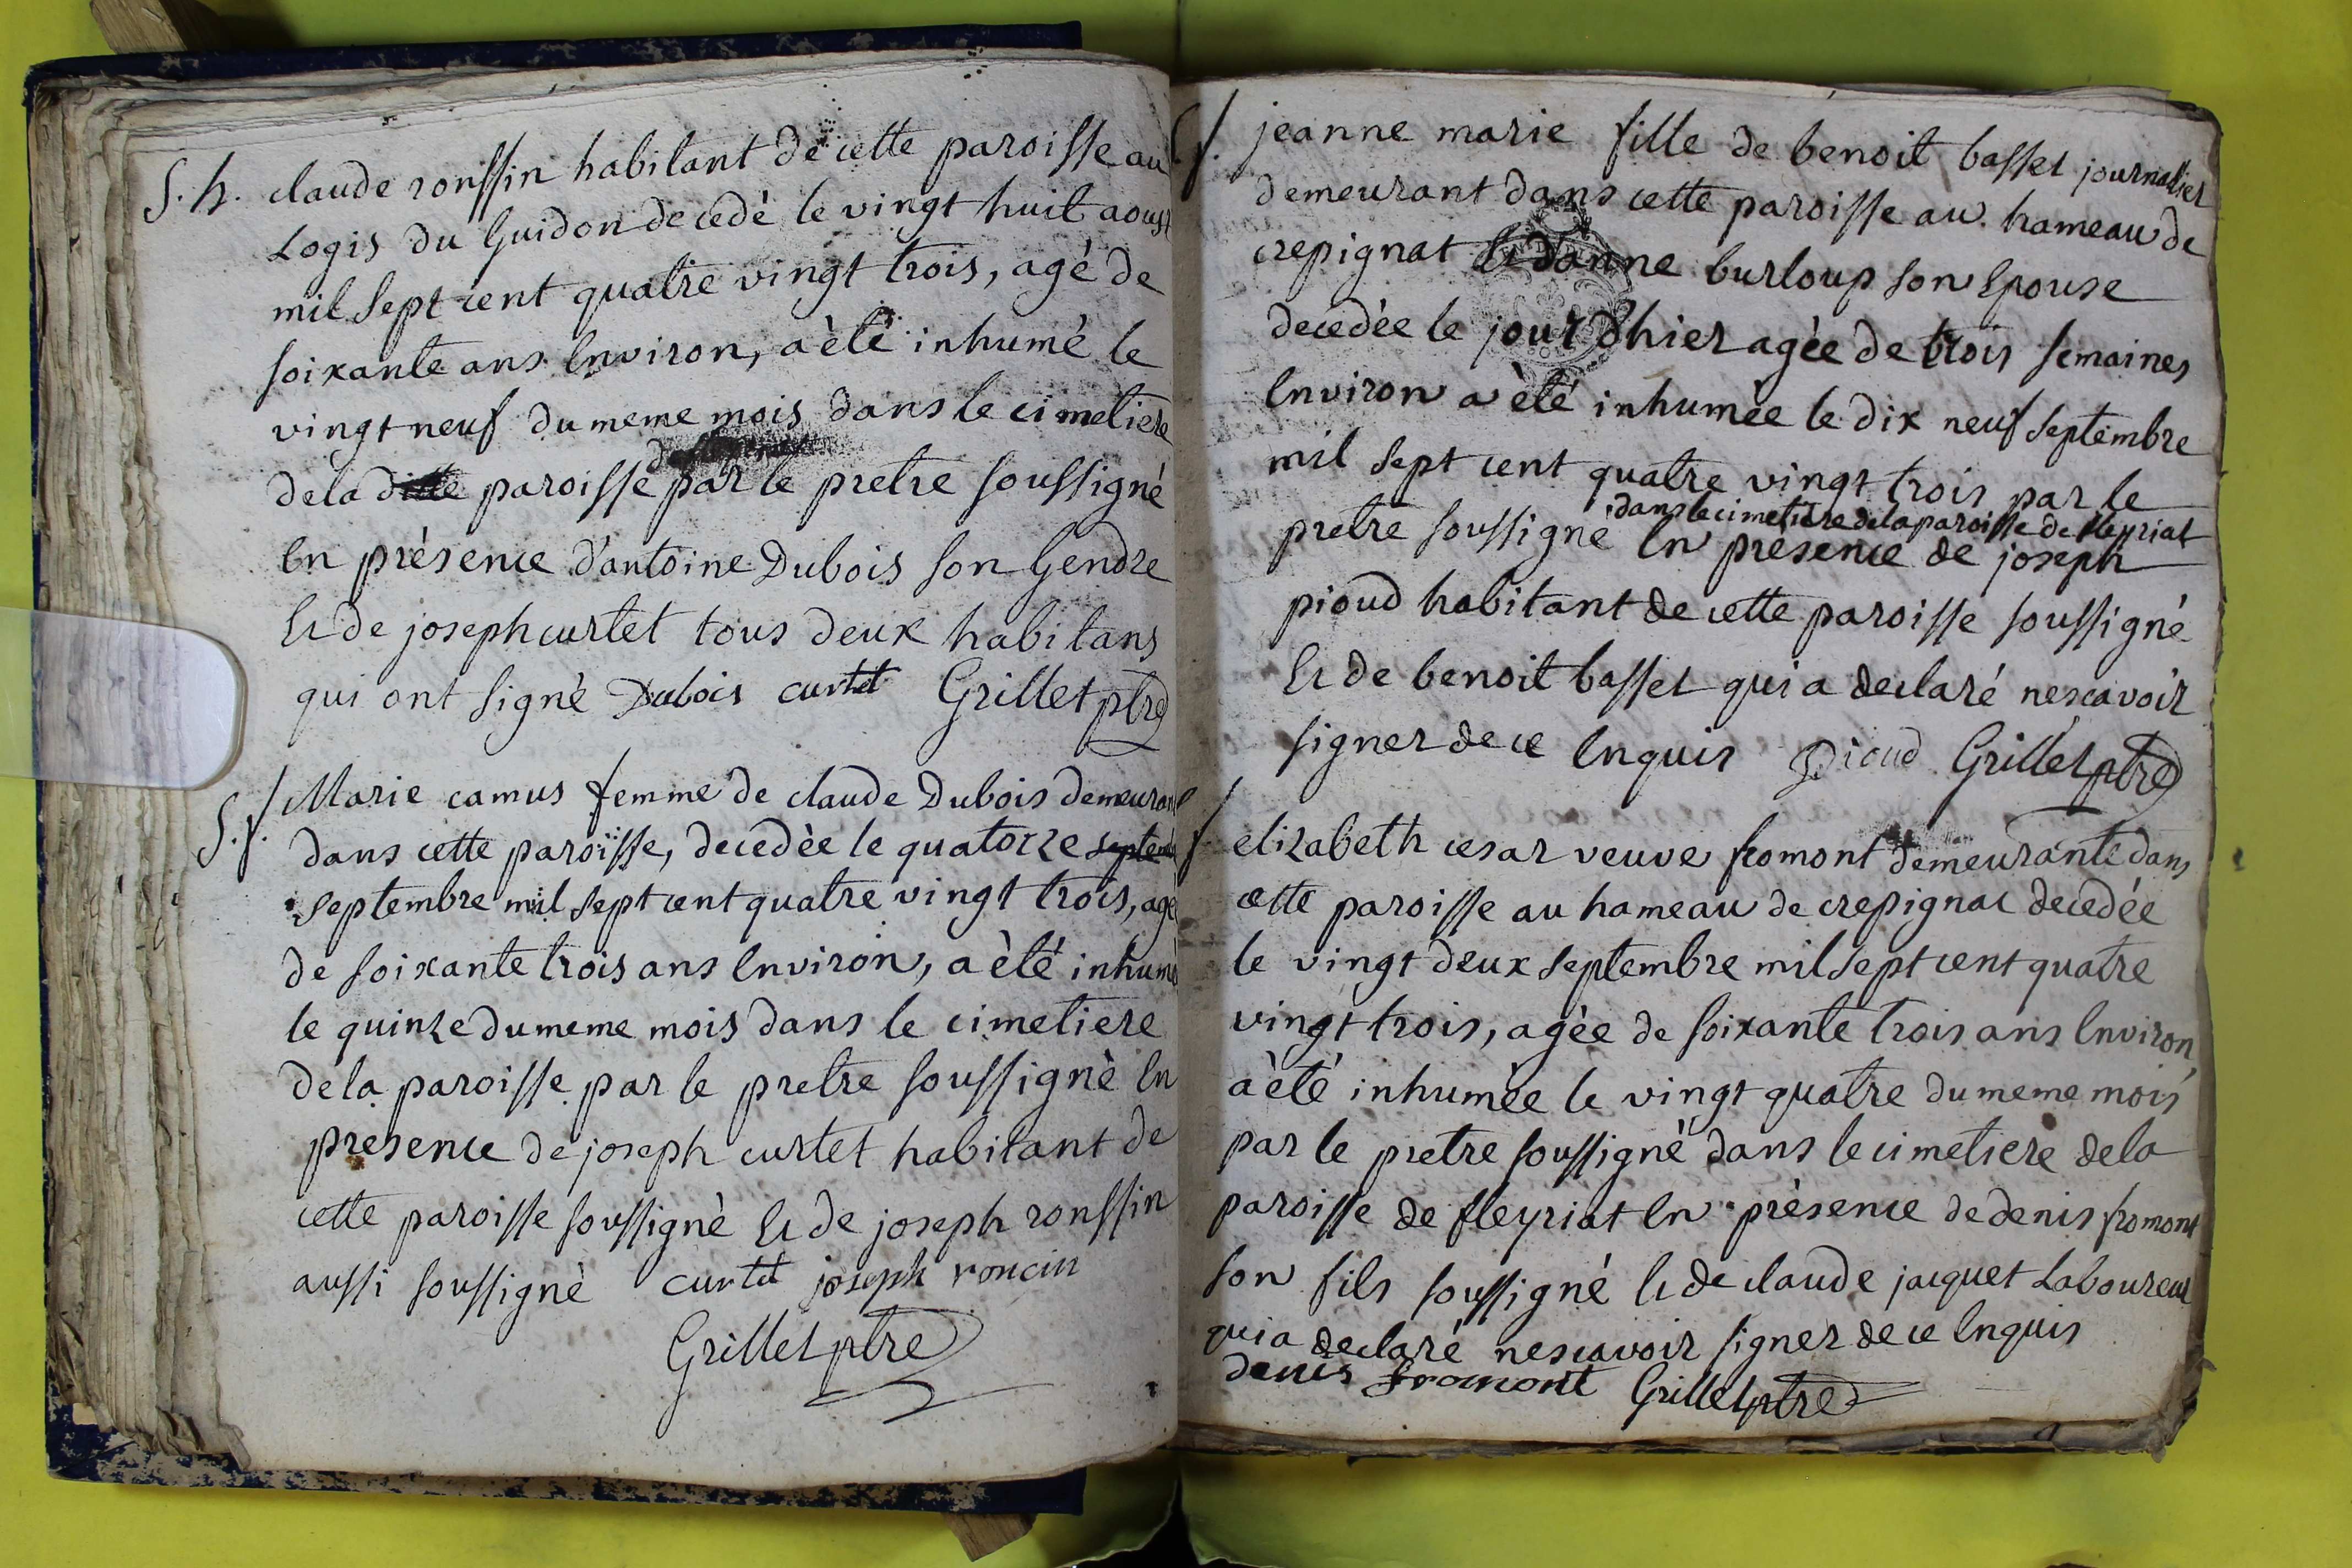 S. h. claude ronssin habitant de cette paroisse au
Logis du Guidon decedé le vingt huit aoust
mil sept cent quatre vingt trois, agé de
soixante ans environ, a èté inhumé le
vingt neuf du meme mois dans le cimetiere
de la ditte paroisse par le pretre soussigné
en présence d'antoine Dubois son Gendre
et de joseph curtet tous deux habitans
qui ont signé Dubois curtet Grillet ptre
S. f. Marie camus femme de claude Dubois demeurant
dans cette paroisse, decedèe le quatorze septemb
septembre mil sept cent quatre vingt trois, agé
de soixante trois ans environ, a èté inhumé
le quinze du meme mois dans le cimetiere
de la paroisse par le pretre soussignè en
presence de joseph curtet habitant de
cette paroisse soussignè et de joseph ronssin
aussi soussignè curtet joseph roncin
Grillet ptre
f. jeanne marie fille de benoit basset journalier
demeurant dans cette paroisse au hameau de
crepignat et danne burloup son epouse
decedèe le jour dhier agèe de trois semaines
environ a èté inhumèe le dix neuf septembre
mil sept cent quatre vingt trois par le
dans le cimetiere de la paroisse de fleyriat
pretre soussigné en presence de joseph
pioud habitant de cette paroisse soussigné
et de benoit basset qui a declaré nescavoir
signer de ce enquis pioud Grillet ptre
f. elizabeth cesar veuve fromont demeurante dans
cette paroisse au hameau de crepignat decedée
le vingt deux septembre mil sept cent quatre
vingt trois, agèe de soixante trois ans environ,
a èté inhumèe le vingt quatre du meme mois
par le pretre soussigné dans le cimetiere de la
paroisse de fleyriat en présence de denis fromont
son fils soussigné et de claude jacquet Laboureur
qui a declaré nescavoir signer de ce enquis
denis fromont Grillet ptre